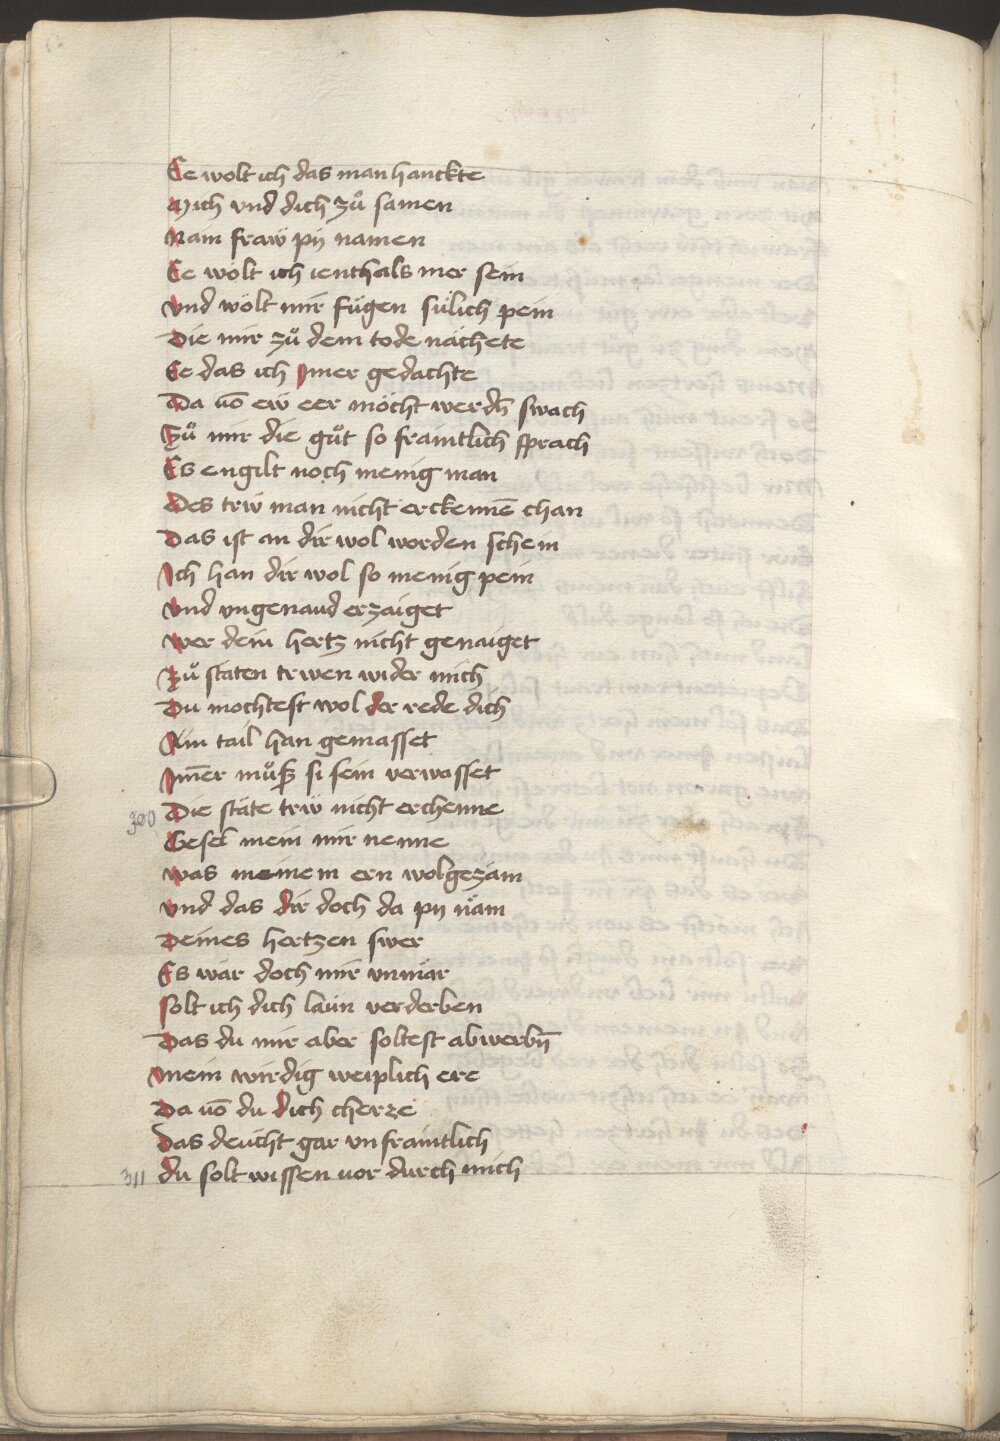 Ee wolt ich das man hanckte
Mich vnd dich zů samen
Nain fraw pÿ namen
Ee wölt ich ienthals mer sein
Vnd wölt mir fügen sülich pein
Die mir zů dem tode nächete
Ee das ich Jmer gedachte
Da uō ew eer möcht werdn̄ swach
Zů mir die gůt so fraintlich sprach
Es engilt noch menig man
Des trw man nicht erckennē chan
Das ist an dir wol worden schein
Ich han dir wol so menig pein
Vnd vngenaud erzaiget
Wer dein hertz nicht genaiget
Zů stäten trwen wider mich
Du mochtest wol der rede dich
Ain tail han gemasset
Jm̄er můß si sein verwasset
300 Die stäte trw nicht erchenne
Gesel mein mir nenne
Was meinem ern wolgezäm
Vnd das dir doch da pÿ näm
Deines hertzen swer
Es wär doch mir vnmär
Solt ich dich laün verderben
Das du mir aber soltest abwerbn̄
Mein wirdig weiplich ere
Da uō du dich cherze
Das deucht gar vnfraintlich
311 du solt wissen uor durch mich